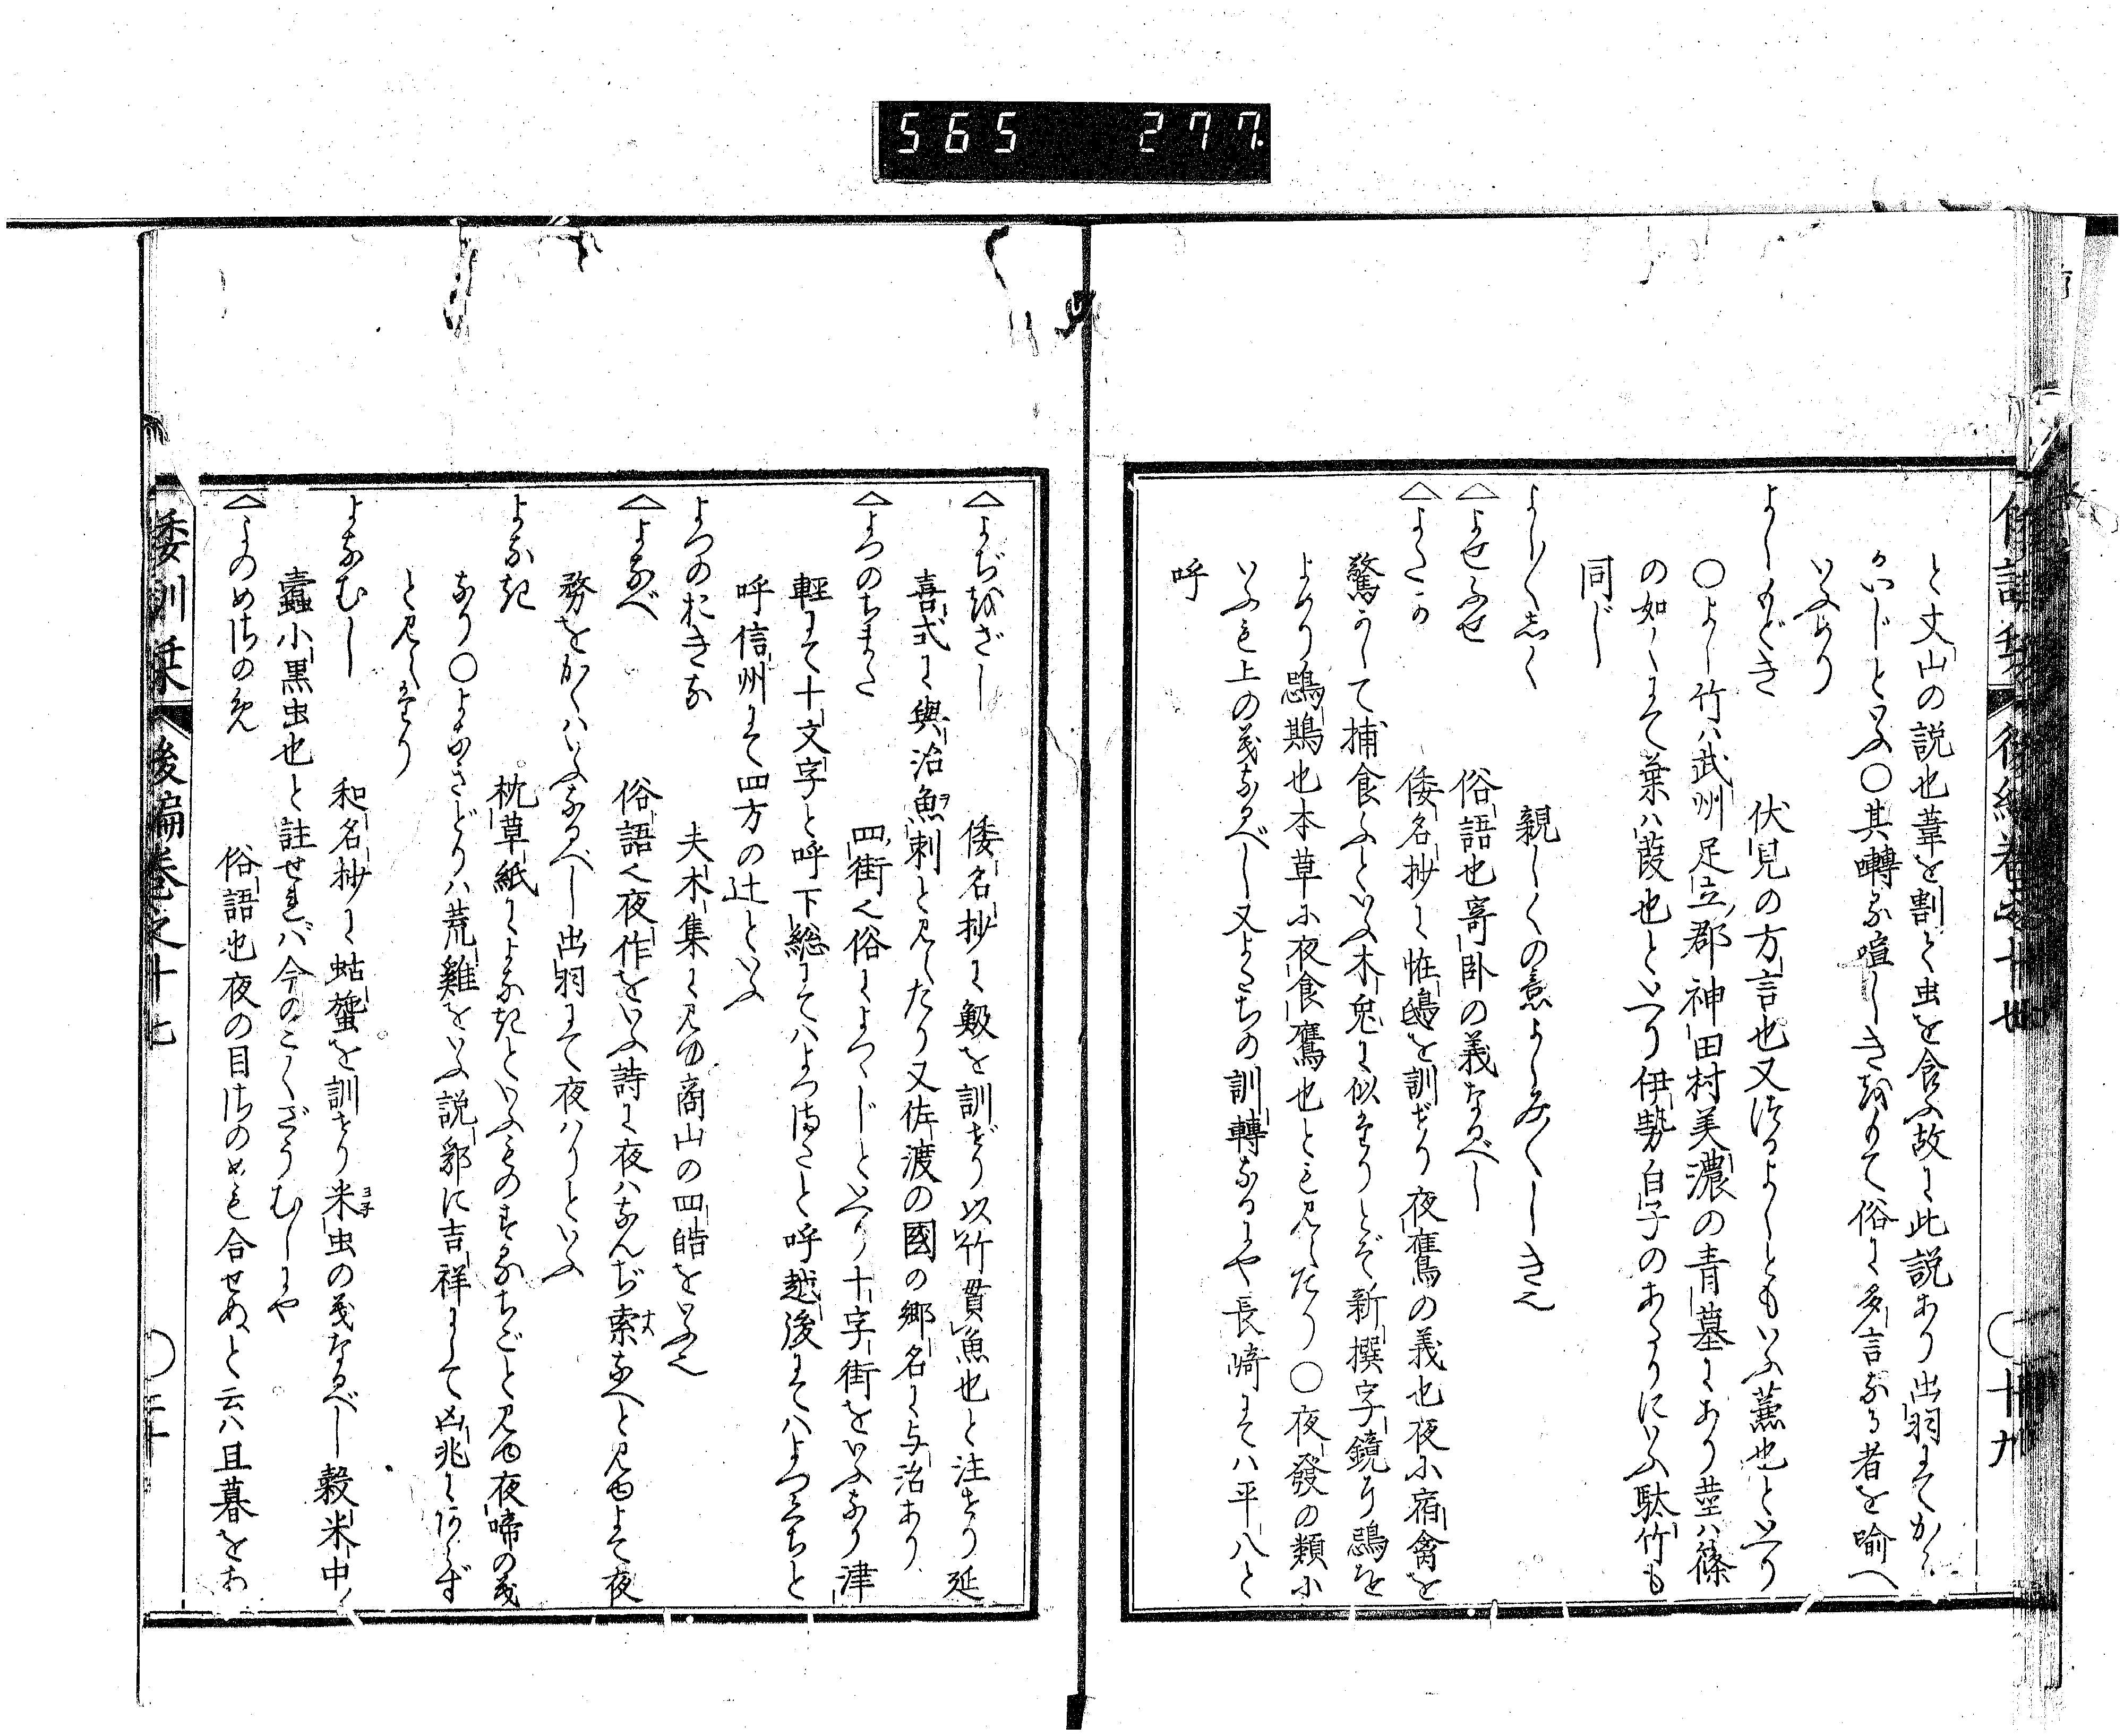 565 277
と丈山の説也葦を割て虫を含ふ故に此説あり出羽にてから
かいじといふ〇其囀る喧しきをもて俗に多言なる者を喩へ
いふめり
よしもどき 伏見の方言也又はりよしともいふ藨也といへり
〇よし竹ハ武州足立郡神田村美濃の青墓にあり莖ハ篠
の如くにて葉ハ葭也といへり伊勢白子のあたりにいふ駄竹も
同じ
よし〳〵志く 親しくの意よしみ〳〵しき也
△よせふせ 俗語也寄卧の義なるべし
△よたか 倭名抄に恠鴟を訓ぜり夜鷹の義也夜小宿禽を
驚かして捕食ふといふ木兔に似たりとぞ新撰字鏡に鵋を
よめり鵋鶀也本草小夜食鷹也とも見えたり〇夜發の類小
いふも上の義なるべし又よたちの訓轉なるにや長崎にてハ平八と
呼
倭訓栞 後編巻之十七
△よぢをざし 倭名抄に鮁を訓ぜり以竹貫魚也と注せり延
喜式に與治魚刺と見えたり又佐渡の國の郷名に与治あり
△よつのちまた 四街也俗によつゝじといへり十字街をいふなり津
輕にて十文字と呼下総にてハよつまたと呼越後にてハよつみちと
呼信州にて四方の辻といふ
よつのおきな 夫木集に見ゆ商山の四皓をいふ也
△よなべ 俗語也夜作をいふ詩に夜ハなんぢ索なへと見ゆよて夜
務をかくハいふなるべし出羽にて夜ハりといふ
よなき 枕草紙によなきといふものするちごと見ゆ夜啼の義
なり〇よなきどりハ荒雞をいふ説郛に吉祥にして凶兆にあらず
と見えたり
よなむし 和名抄に蛄䗐を訓せり米虫の義なるべし穀米中ノ
蠹小黒虫也と註せれバ今のこくざうむしにや
△よのめはのめ 俗語也夜の目はのめも合せぬと云ハ旦暮をわ